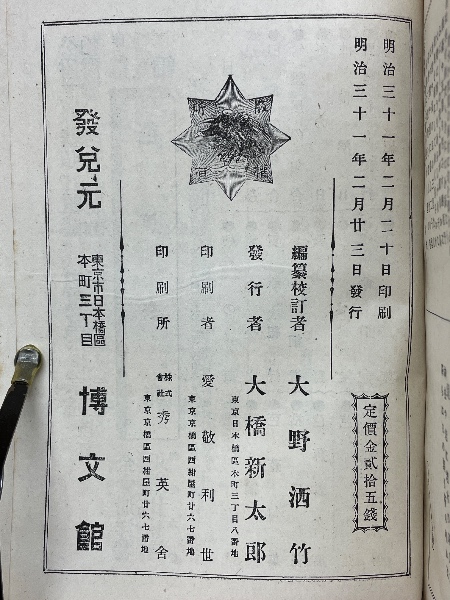 明治三十一年二月二十日印刷
明治三十一年二月廿三日發行
定價金貳拾五錢
編纂校訂者 大野洒竹
發行者 大橋新太郎
東京日本橋區本町三丁目八番地
印刷者 愛敬利世
東京京橋區西紺屋町廿六七番地
印刷所 株式會社 秀英舍
東京京橋區西紺屋町廿六七番地
發兌元 東京市日本橋區本町三丁目 博文館